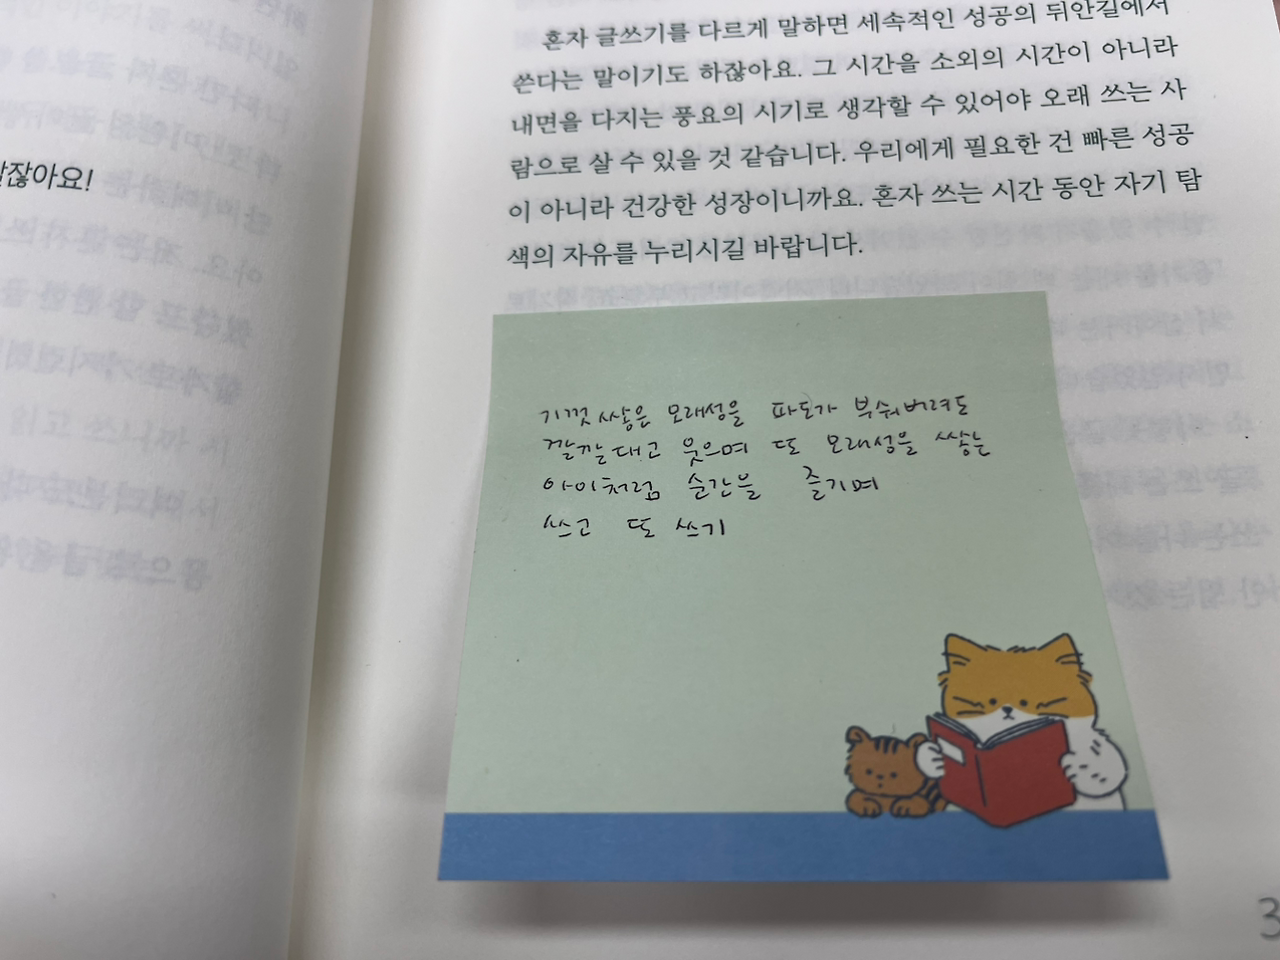 잖아요!
혼자 글쓰기를 다르게 말하면 세속적인 성공의 뒤안길에서
쓴다는 말이기도 하잖아요. 그 시간을 소외의 시간이 아니라
내면을 다지는 풍요의 시기로 생각할 수 있어야 오래 쓰는 사
람으로 살 수 있을 것 같습니다. 우리에게 필요한 건 빠른 성공
이 아니라 건강한 성장이니까요. 혼자 쓰는 시간 동안 자기 탐
색의 자유를 누리시길 바랍니다.
기껏 쌓은 모래성을 파도가 부숴버려도
깔깔대고 웃으며 또 모래성을 쌓는
아이처럼 순간을 즐기며
쓰고 또 쓰기
3